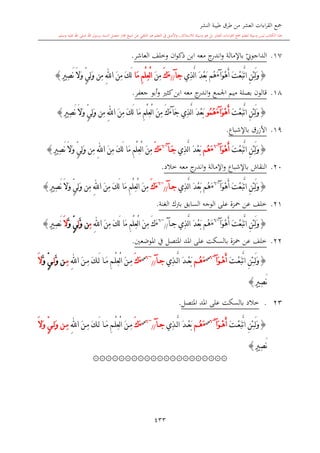 جمع القراءات العشر من طرق طيبة النشر
١٧. الداجونيّ بالإمالة واندرج معه ابن ذكوان وخلف العاشر.
﴿ وَلَئِنِ اتَّبَعْتَ أَهْوَآءَهُم بَعْدَ الَّذِي جَآءَكَ مِنَ الْعِلْمِ مَا لَكَ مِنَ اللهِ مِن وَلِيٍّ وَلَا نَصِيرٍ ﴾
١٨. قالون بصلة ميم الجمع واندرج معه ابن كثير وأبو جعفر.
﴿ وَلَئِنِ اتَّبَعْتَ أَهْوَآءَهُمُو بَعْدَ الَّذِي جَآءَكَ مِنَ الْعِلْمِ مَا لَكَ مِنَ اللهِ مِن وَلِيٍّ وَلَا نَصِيرٍ ﴾
١٩. الأزرق بالإشباع.
﴿ وَلَئِنِ اتَّبَعْتَ أَهْوَآءَهُم بَعْدَ الَّذِي جَآءَكَ مِنَ الْعِلْمِ مَا لَكَ مِنَ اللهِ مِن وَلِيٍّ وَلَا نَصِيرٍ ﴾
٢٠. النقاش بالإمالة والإشباع واندرج معه خلاد.
﴿ وَلَئِنِ اتَّبَعْتَ أَهْوَآءَهُم بَعْدَ الَّذِي جَآءَكَ مِنَ الْعِلْمِ مَا لَكَ مِنَ اللهِ مِن وَلِيٍّ وَلَا نَصِيرٍ ﴾
٢١. خلف عن حمزة على الوجه السابق بترك الغنة.
﴿ وَلَئِنِ اتَّبَعْتَ أَهْوَآءَهُم بَعْدَ الَّذِي جَآءَكَ مِنَ الْعِلْمِ مَا لَكَ مِنَ اللهِ مِن وَلِيٍّ وَلَا نَصِيرٍ ﴾
٢٢. خلف عن حمزة بالسكت على المد المتصل في الموضعين.
﴿ وَلَئِنِ اتَّبَعْتَ أَهْوَآءَهُم بَعْدَ الَّذِي جَآءَكَ مِنَ الْعِلْمِ مَا لَكَ مِنَ اللهِ مِن وَلِيٍّ وَلَا
نَصِيرٍ ﴾
٢٣ . خلاد بالسكت على المد المتصل.
﴿ وَلَئِنِ اتَّبَعْتَ أَهْوَآءَهُم بَعْدَ الَّذِي جَآءَكَ مِنَ الْعِلْمِ مَا لَكَ مِنَ اللهِ مِن وَلِيٍّ وَلَا
نَصِيرٍ ﴾
٤٣٣